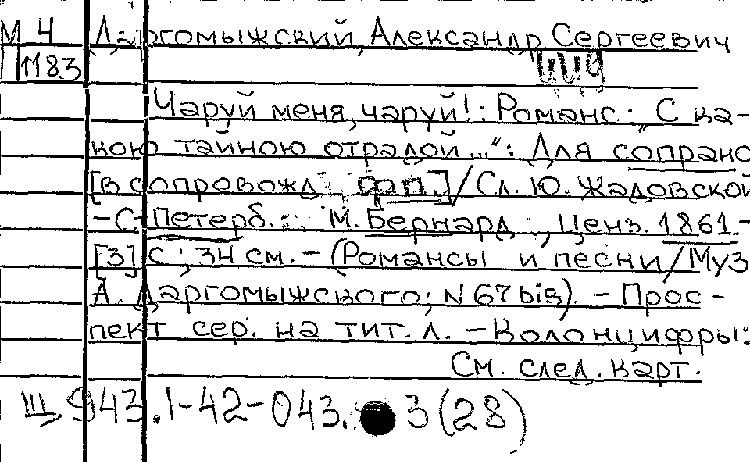 М 4 Даргомыжский, Александр Сергеевич
1183
Чаруй меня, чаруй!: Романс: „С ка-
кою тайною отрадой...“: Для сопрано
[в сопровожд. фп.]/Сл. Ю. Жадовской
-С-Петерб.: М. Бернард, Ценз. 1861.-
[3] с.; 34 см. - (Романсы и песни/Муз
А. Даргомыжского; N 67 bis). - Прос-
пект сер. на тит. л. - Колонцифры:
См. след. карт.
Ш 943.1-42-043. 3(28)